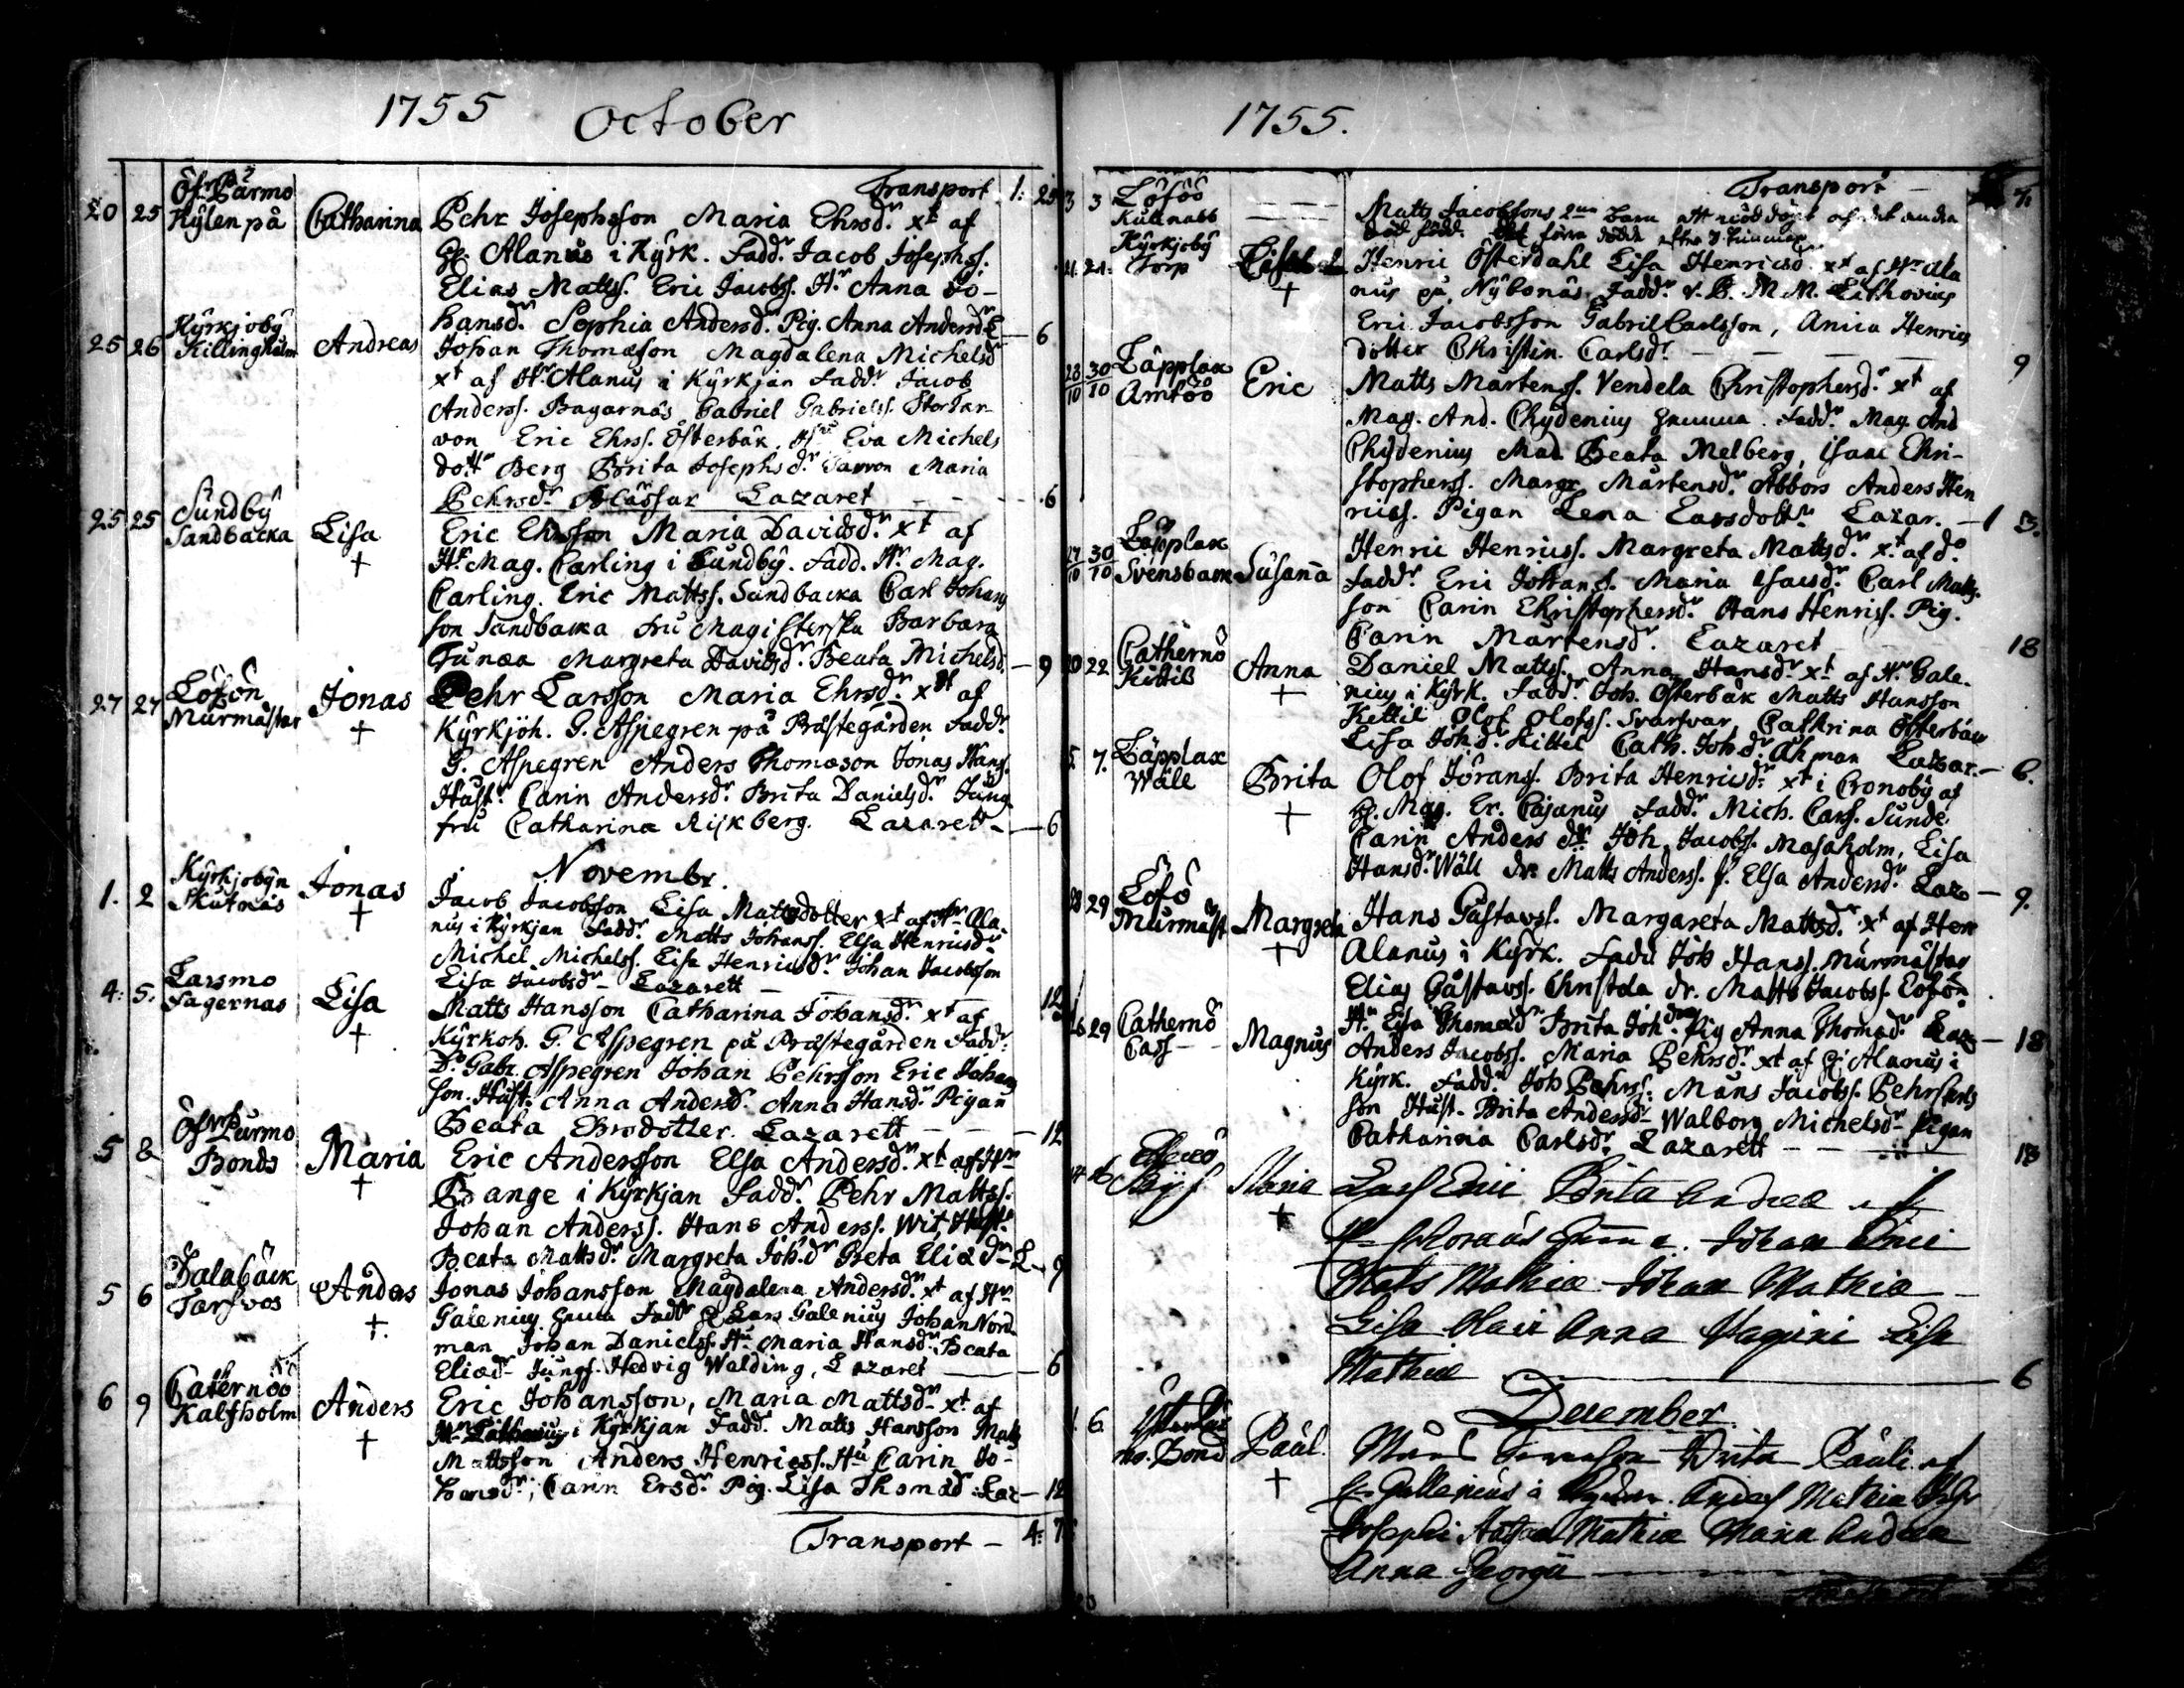 1755 October
Transport 1: 25
20 25 Öfr Pärmo Catharina Pehr Josephsson Maria Ehrsdr xt af
Kÿlen på
H. Alanus i Kÿrk. Faddr Jacob Josephss.
Elias Mattss. Eric Jacobss. Hr Anna Jo-
hansdr Sophia Andersdr Pig. Anna Andersdr L — 6
25 26 Kÿrkjobÿ Killingholm Andreas Johan Thomæson Magdalena Michelsdr
xt af Hr Alanus i Kÿrkjan Faddr Jacob
Anderss. Bagarnäs Gabriel Gabrielss. Storfar
von Eric Ehrss. Österbäk. Eva Michels
dottr Berg Brita Josephsdr Maria
Pehrsdr Lazaret - - - 6
25 25 Sundbÿ Sandbacka Lisa + Eric Ehrsson Maria Davidsdr xt af
Hr Mag. Carling i Sundbÿ. Fadd. Hr Mag.
Carling. Eric Mattss. Sandbacka Carl Johans
son Sandbacka fru Magisterska Barbara
Margreta Davidsdr Beata Michelsd. — 9
27 27 Löfön Mürmästar Jonas + Pehr Larsson Maria Ehrsdr xt af
Kÿrkjoh. G. Aspegren på Prästegården Faddr
G. Aspegren Anders Thomæson Jonas Hans.
Hustr Carin Andersdr Brita Danielsdr Jung
fru Catharina Rijkberg. Lazaret — 6
Novembr.
1. 2 Kÿrkjobÿn Skutnäs Jonas + Jacob Jacobsson Lisa Mattsdotter xt af Hr Ala-
nus i Kÿrkjan Faddr Matts Johanss. Elsa Henricsdr
Michel Michelss. Lisa Henricsdr Johan Jacobsson
Lisa Jacobsdr - Lazarett — 12
4: 5. Larsmo Fagernäs Lisa + Matts Hansson Catharina Johansdr xt af
Kÿrkoh. G. Aspegren på Prästegården Faddr:
Do Gabr. Aspegren Johan Pehrsson Eric Johans
son. Hust. Anna Andersd. Anna Hansdr Pigan
Beata Ersdotter. Lazarett - - - 12
5 8 Öfr Purmo Bonds Maria + Eric Andersson Elsa Andersdr xt af Hr
Bange i Kÿrkjan Faddr Pehr Mattss.
Johan Anderss. Hans Anderss. Wit Hust.
Beata Mattsdr Margreta Johdr Greta Eliædr L — 9
5 6 Dalabäck Andes + Jonas Johansson Magdalena Andersdr xt af Hr
Galenius Faddr Lars Galenius Johan Nord-
man Johan Danielss. Hu Maria Hansdr Beata
Eliædr Jungf. Hedvig Walding, Lazaret — 6
6 9 Caternöö Kalfholm Anders + Eric Johansson, Maria Mattsdr xt af
Hr i Kÿrkjan Faddr Matts Hansson Matts
Mattsson Anders Henricss. Hu Carin Jo-
hansdr, Carin Ersdr Pig. Lisa Thomsdr Laz — 12
Transport — 4: 7
1755.
Transport — 7
3 3 Löföö Kullnabb Matts Jacobssons 2ne barn ett
död född. förra dödde efter
21. 21. Kÿrkjobÿ Torp + Henric Österdahl Lisa Henricsdr xt af Hr Ala
nus på Nÿbonäs. Faddr V. P. M. M. Lithovius
Eric Jacobsson Gabril Carlsson, Anna Henrics
dotter Christin. Carlsdr — 9
28/10 30/10 Läpplax Amtöö Eric Matts Martenss. Vendela Christophersdr xt af
Mag. And. Chÿdenius hemma. Faddr Mag. And
Chÿdenius Mad. Beata Melberg, Isaac Chri-
stopherss. Margr. Mårtensdr Abbors Anders Hen
ricss. Pigan Lena Larsdottr Lazar. — 1 3.
27/10 30/10 Läpplax Svensbacka Susanna Henric Henricss. Margreta Mattsdr xt af do
Faddr Eric Johanss. Maria Isacsdr Carl Matts-
son Carin Christophersdr Hans Henrics. Pig.
Carin Martensdr Lazaret — 18
20 22 Catherno Kittil Anna + Daniel Mattss. Anna Hansdr xt af Hr Gale-
nius i Kÿrk. Faddr Joh. Österbäk Matts Hansson
Kettil Olof Olofss. Svarfvar Cathrina Österbäck
Lisa Johdr Kittel Cath. Johdr Åhman Lazar. — 6.
5. 7. Läpplax Wäll Brita + Olof Jöranss. Brita Henricsdr xt i Cronobÿ af
H. Mag. Er. Cajanus Faddr Mich. Carss. Sunde
Carin Anders dr Joh. Jacobss. Masaholm, Lisa
Hansdr Wäll Matts Anderss. Elsa Andersdr Laz — 9.
28 29 Löfö Mürmäst Margreta + Hans Gustavss. Margareta Mattsdr xt af Herr
Alanus i Kÿrk. Faddr Joh Hanss. Mürmästar
Elias Gustavss. Matts Jacobss. Löfön
Hu Lisa Thomædr Brita Johdr Pig Anna Thomædr Laz — 18
26 29 Catherno Cass Magnus Anders Jacobss. Maria Pehrsdr xt af H. Alanus i
Kÿrk. Faddr Joh Pehrss. Måns Jacobss. Pehr
son Hust. Brita Andersdr Walborg Michelsdr Pigan
Catharina Carlsdr Lazarett — 18
14 16 Maria + Lars Erici Brita Andreæ af
Johan Erici
Mats Mathiæ Johan Mathiæ
Lisa Olai Anna Magni Lisa
Mathiæ — 6
December
1. 6. mo. Bond Paul + Måns Brita Pauli af
Gallenius i Anders Mathiæ
Josephi Mathiæ Maria Andreæ
Anna Georgii